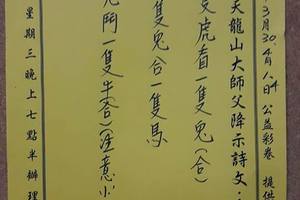 3月30.4月1日4 公益彩卷 提供
天龍山大師父降示詩文：
虎看一隻兔(合)
隻兔合一隻馬
鬥一隻牛(合)(注意小
星期三晚上七點半辦理